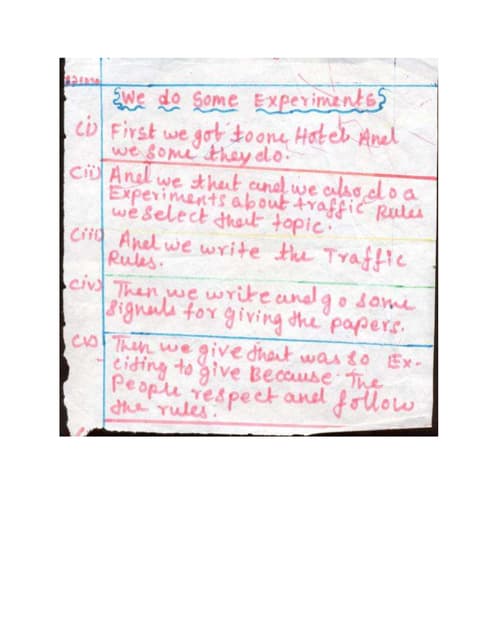 We do Some Experiments
(i) First we got to one Hotel And
we some they do.
(ii) And we that and we also do a
Experiments about traffic Rules
we select that topic.
(iii) And we write the Traffic
Rules.
(iv) Then we write and go some
Signals for giving the papers.
(v) Then we give that was so Ex-
citing to give Because The
People respect and follow
the rules.